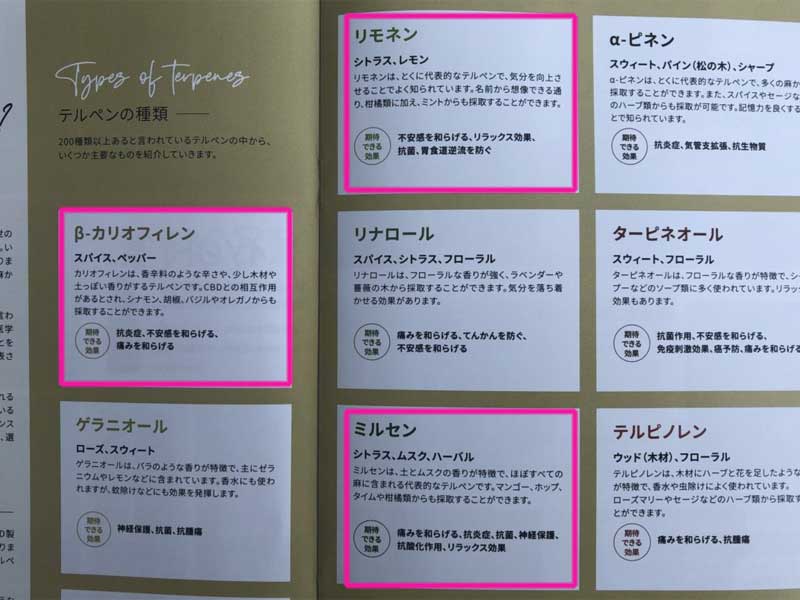 Types of terpenes
テルペンの種類
200種類以上あると言われているテルペンの中から、
いくつか主要なものを紹介していきます。
β-カリオフィレン
スパイス、ペッパー
カリオフィレンは、香辛料のような辛さや、少し木材や
土っぽい香りがするテルペンです。CBDとの相互作用
があるとされ、シナモン、胡椒、バジルやオレガノからも
採取することができます。
期待
できる
効果
抗炎症、不安感を和らげる、
痛みを和らげる
ゲラニオール
ローズ、スウィート
ゲラニオールは、バラのような香りが特徴で、主にゼラ
ニウムやレモンなどに含まれています。香水にも使わ
れますが、蚊除けなどにも効果を発揮します。
期待
できる
効果
神経保護、抗菌、抗腫瘍
リモネン
シトラス、レモン
リモネンは、とくに代表的なテルペンで、気分を向上さ
せることでよく知られています。名前から想像できる通
り、柑橘類に加え、ミントからも採取することができます。
期待
できる
効果
不安感を和らげる、リラックス効果、
抗菌、胃食道逆流を防ぐ
リナロール
スパイス、シトラス、フローラル
リナロールは、フローラルな香りが強く、ラベンダーや
薔薇の木から採取することができます。気分を落ち着
かせる効果があります。
期待
できる
効果
痛みを和らげる、てんかんを防ぐ、
不安感を和らげる
ミルセン
シトラス、ムスク、ハーバル
ミルセンは、土とムスクの香りが特徴で、ほぼすべての
麻に含まれる代表的なテルペンです。マンゴー、ホップ、
タイムや柑橘類からも採取することができます。
期待
できる
効果
痛みを和らげる、抗炎症、抗菌、神経保護、
抗酸化作用、リラックス効果
α-ピネン
スウィート、パイン（松の木）、シャープ
α-ピネンは、とくに代表的なテルペンで、多くの麻か
採取することができます。また、スパイスやセージな
のハーブ類からも採取が可能です。記憶力を良くする
とで知られています。
期待
できる
効果
抗炎症、気管支拡張、抗生物質
ターピネオール
スウィート、フローラル
ターピネオールは、フローラルな香りが特徴で、シ
プーなどのソープ類に多く使われています。リラッ
効果もあります。
期待
できる
効果
抗菌作用、不安感を和らげる、
免疫刺激効果、癌予防、痛みを和らげる
テルピノレン
ウッド（木材）、フローラル
テルピノレンは、木材にハーブと花を足したような
が特徴で、香水や虫除けによく使われています。
ローズマリーやセージなどのハーブ類から採取す
とができます。
期待
できる
効果
痛みを和らげる、抗腫瘍